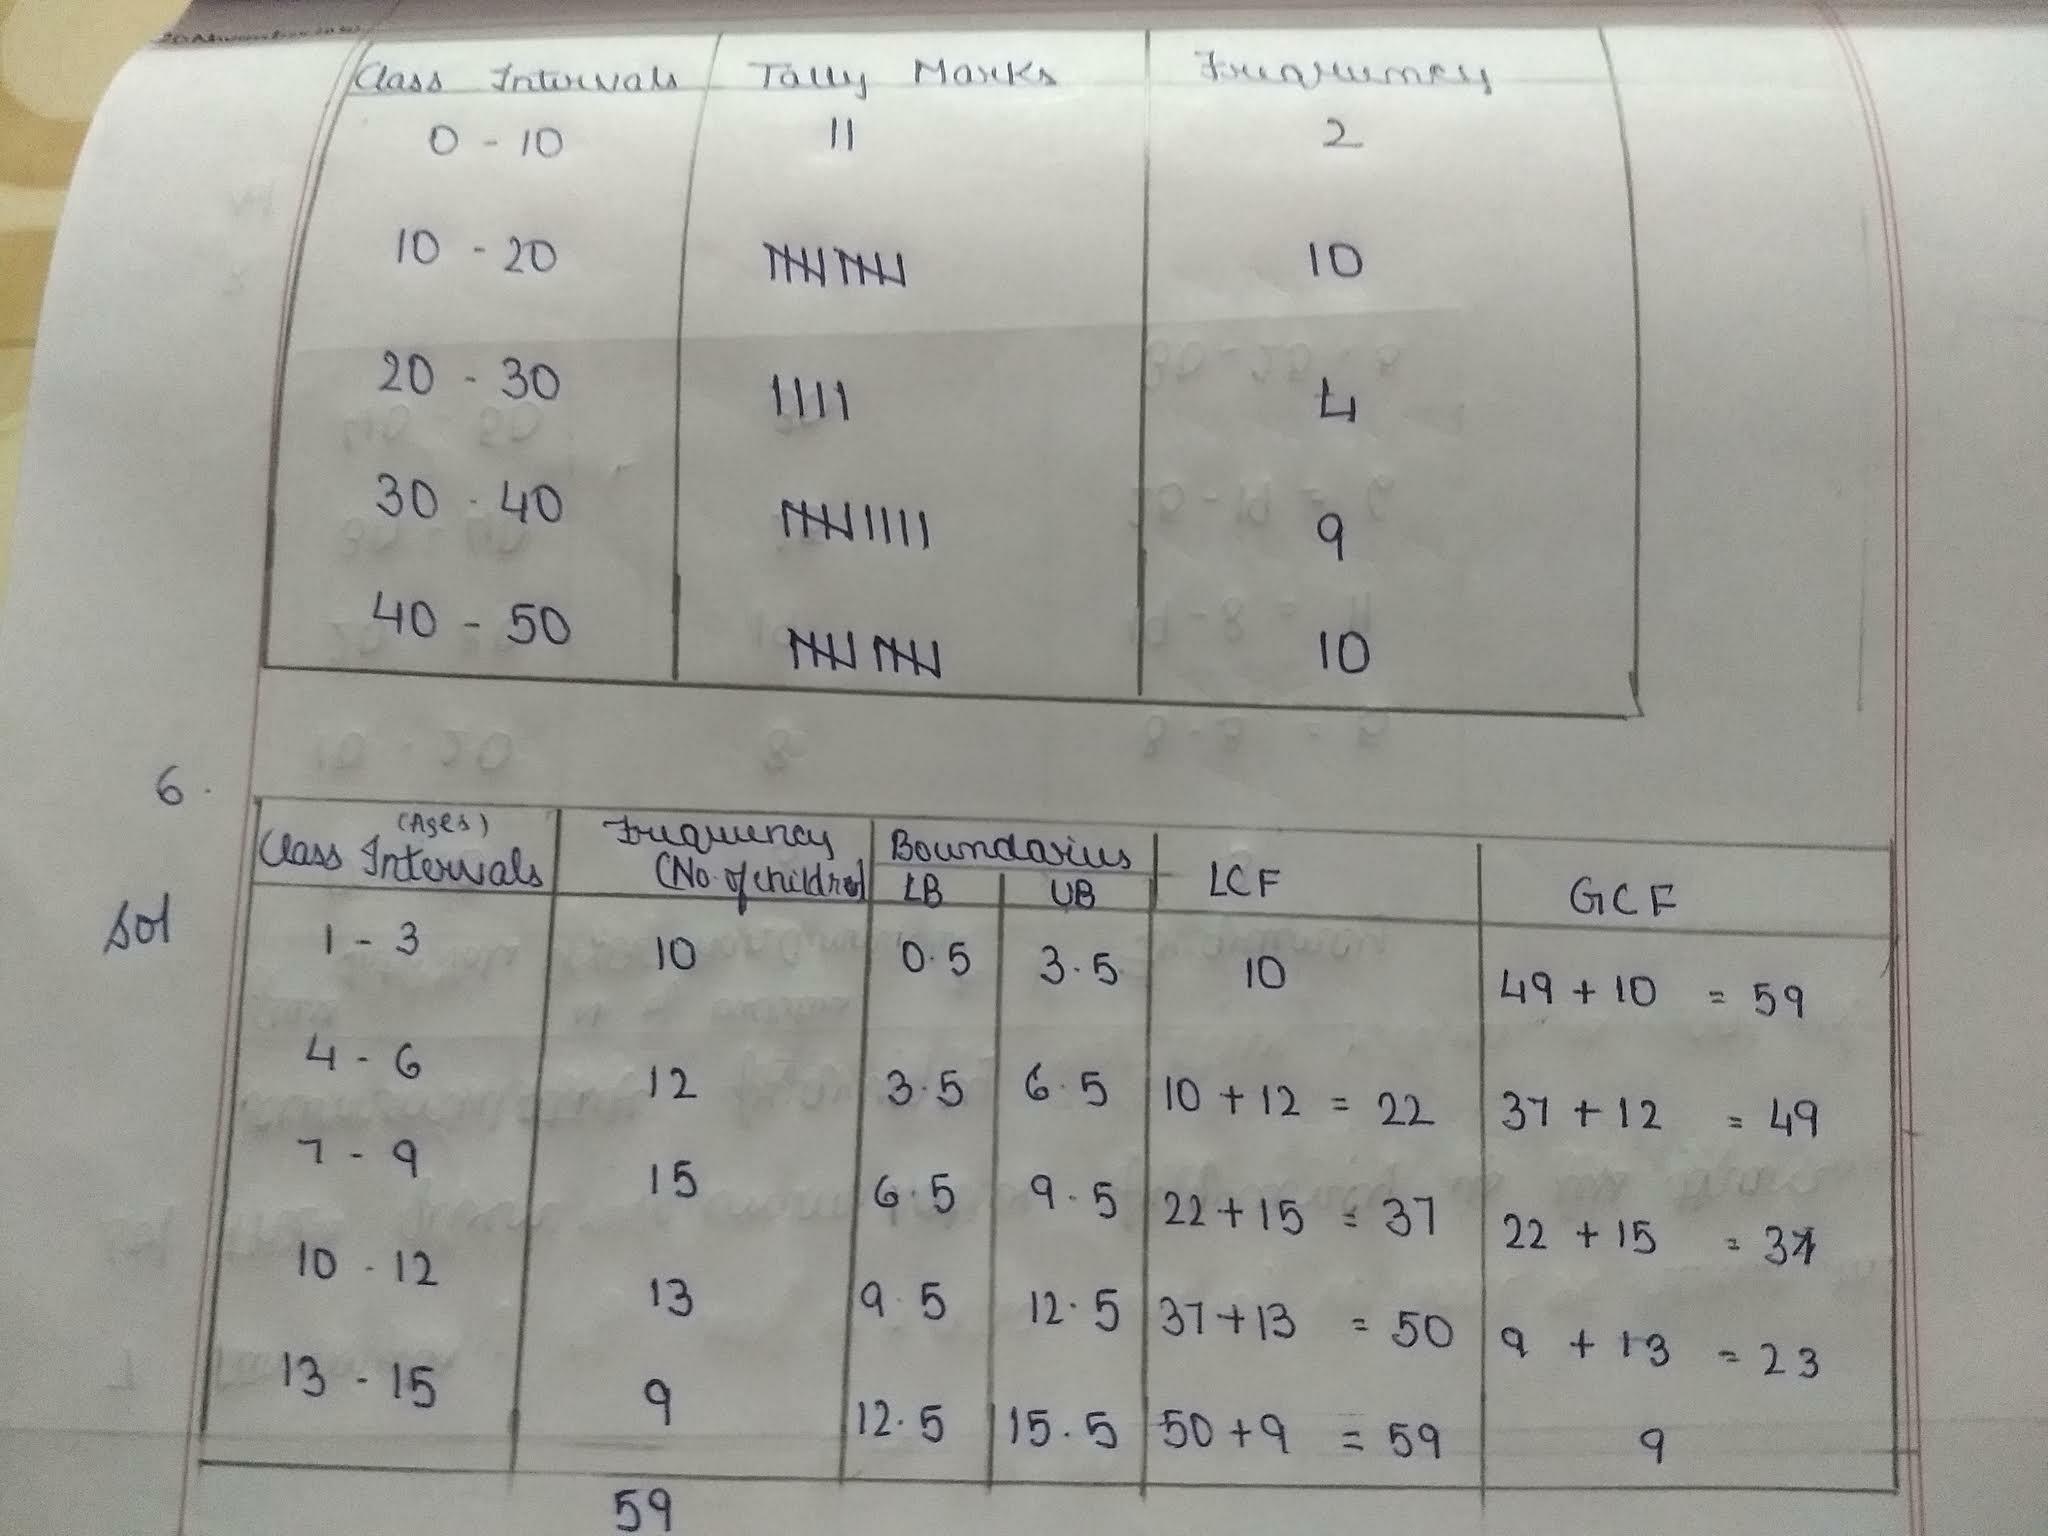 Class Intervals Tally Marks Frequency
0 - 10 || 2
10 - 20 |||| |||| 10
20 - 30 |||| 4
30 - 40 |||| |||| 9
40 - 50 |||| |||| 10
6.
Class Intervals (Ages) Frequency (No. of children) Boundaries LCF GCF
LB UB
Sol 1 - 3 10 0.5 3.5 10 49 + 10 = 59
4 - 6 12 3.5 6.5 10 + 12 = 22 37 + 12 = 49
7 - 9 15 6.5 9.5 22 + 15 = 37 22 + 15 = 37
10 - 12 13 9.5 12.5 37 + 13 = 50 9 + 13 = 23
13 - 15 9 12.5 15.5 50 + 9 = 59 9
59